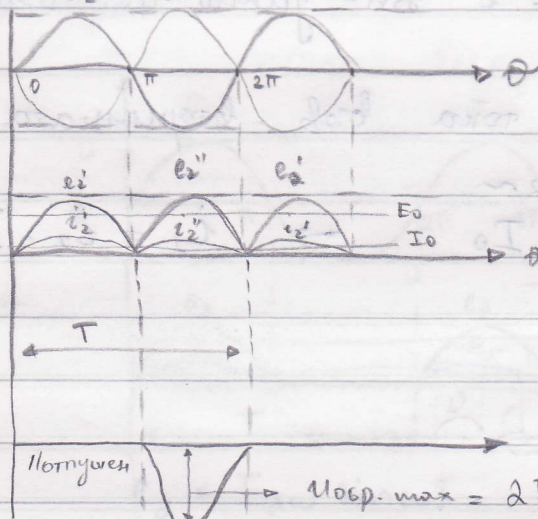 0 π 2π θ
e₂' e₂'' e₂'
i₂' i₂'' i₂' E₀
I₀
T
Uобр. max = 2